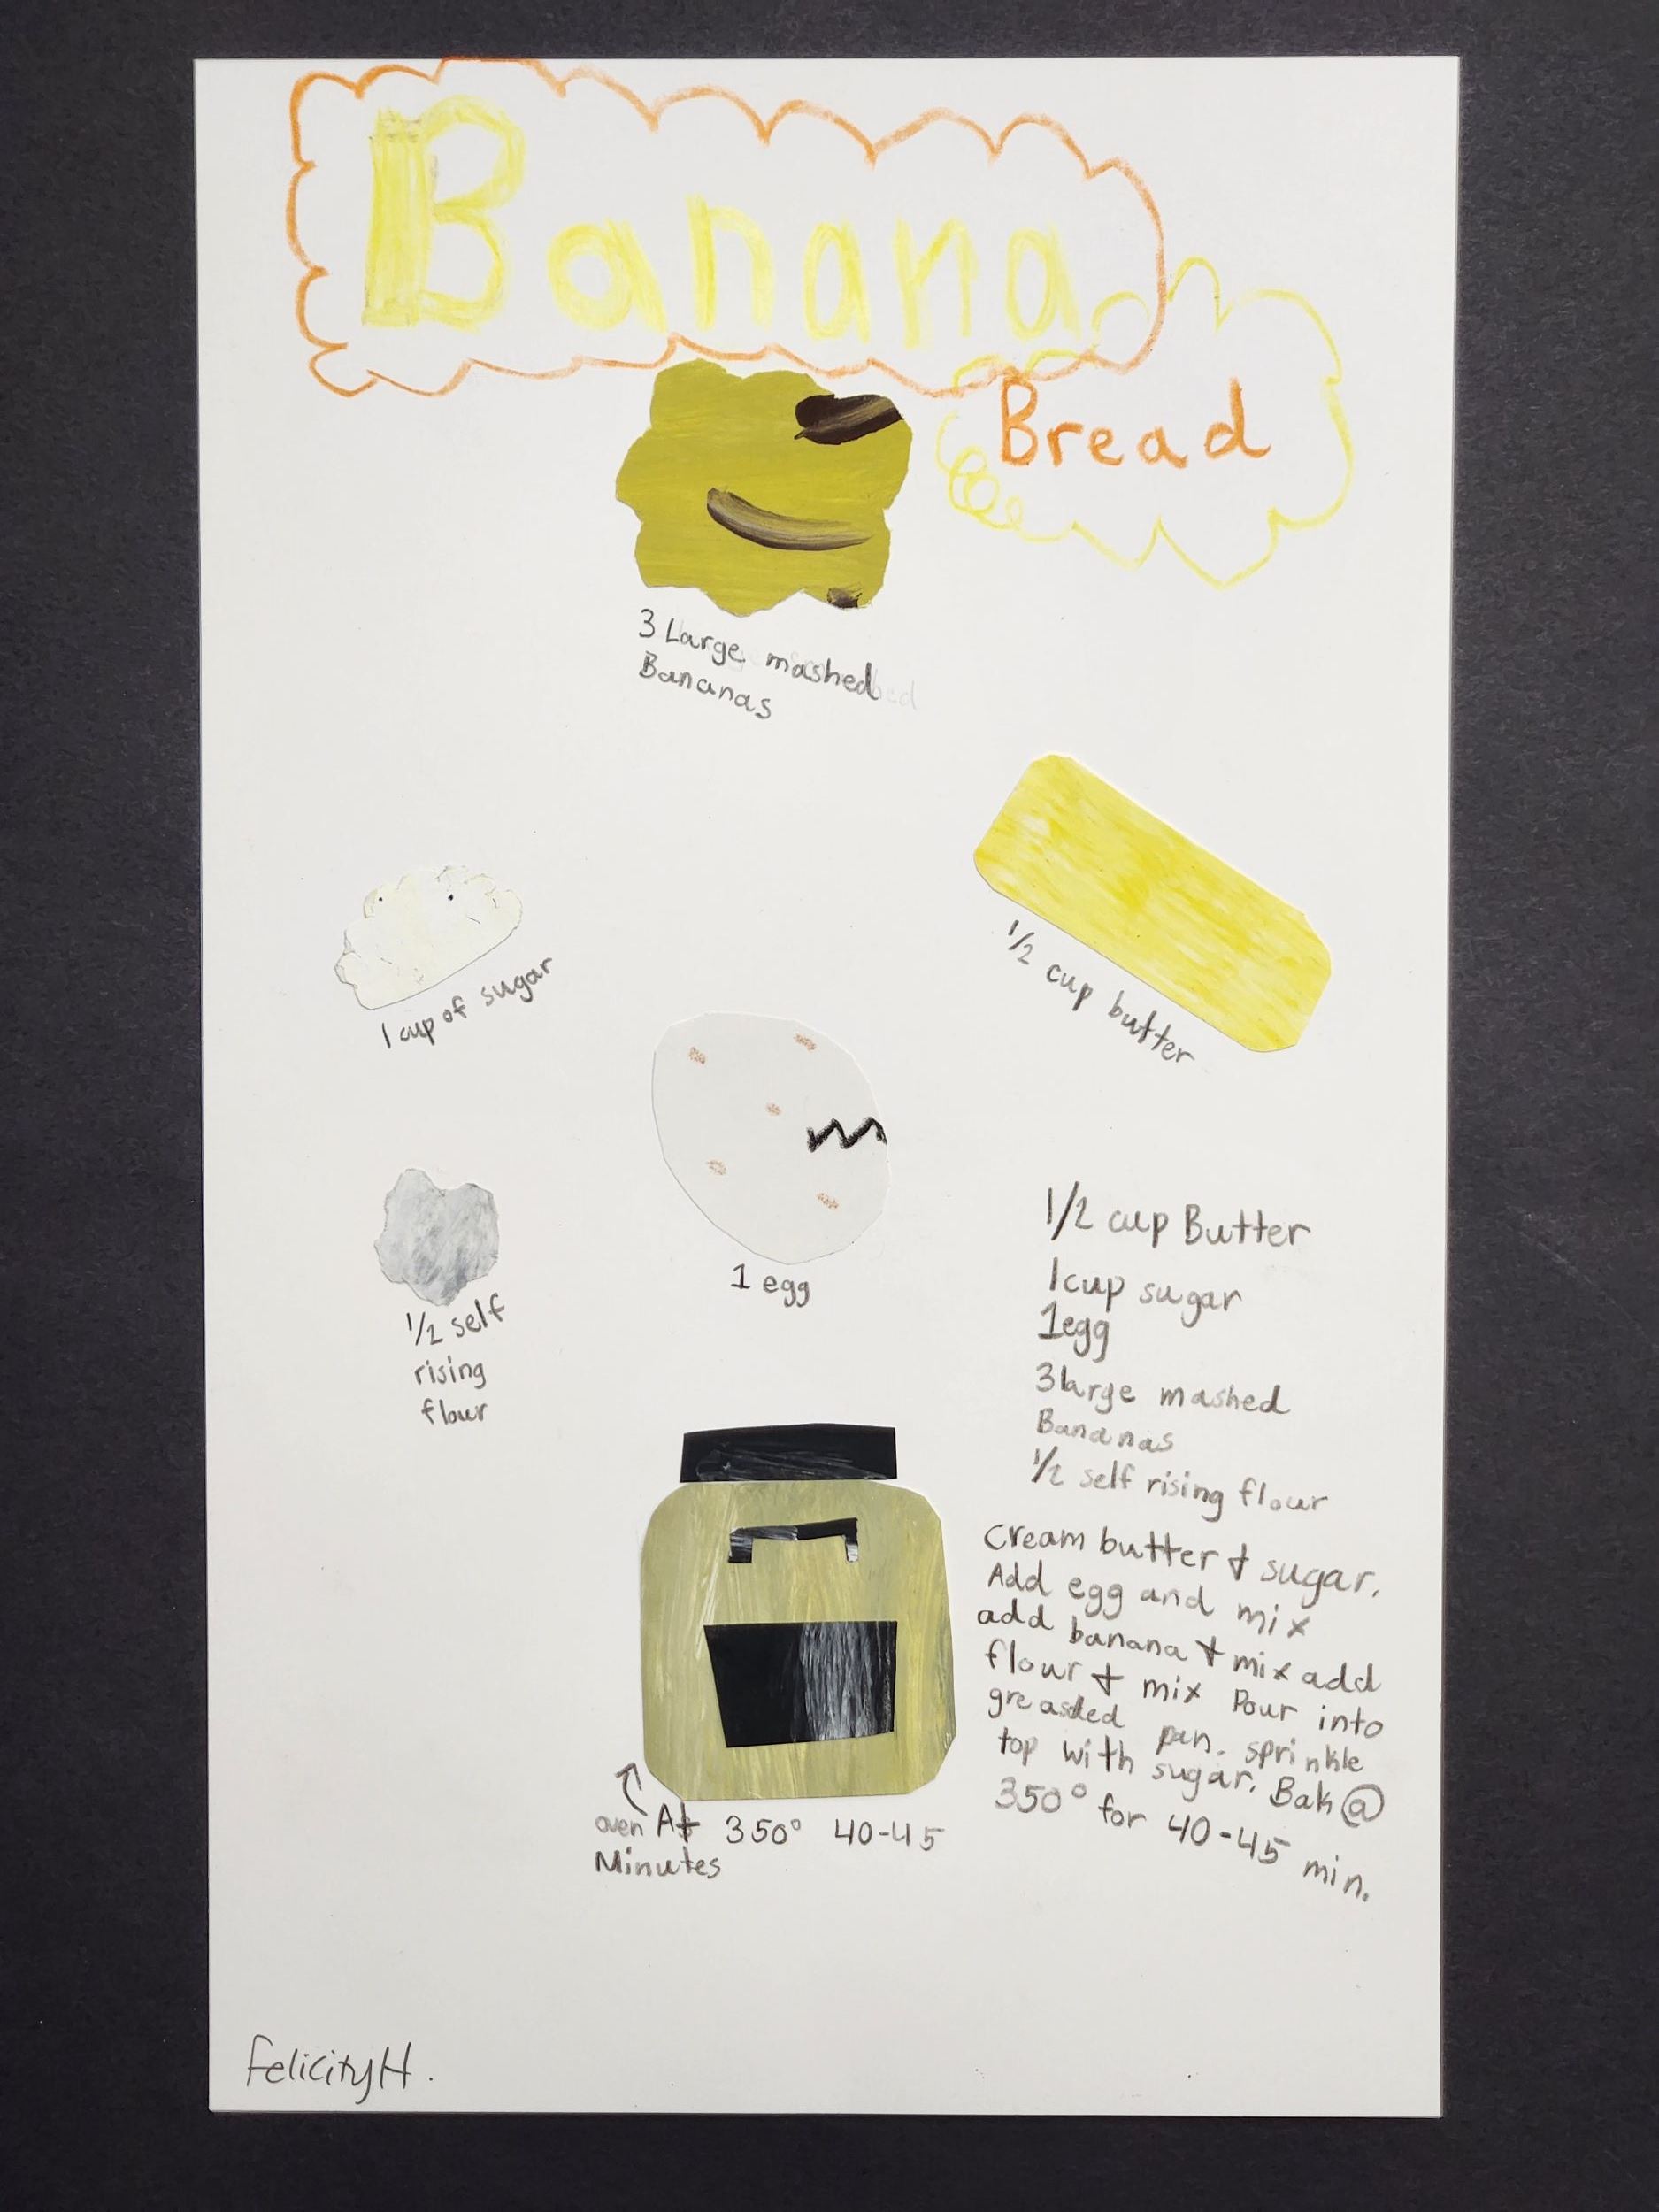 Banana
Bread
3 Large mashed
Bananas
1/2 cup butter
1 cup of sugar
1 egg
1/2 self
rising
flour
1/2 cup Butter
1 cup sugar
1 egg
3 large mashed
Bananas
1/2 self rising flour
Cream butter & sugar.
Add egg and mix
add banana & mix add
flour & mix Pour into
greasded pan. sprinkle
top with sugar. Bak @
350° for 40-45 min.
oven At 350° 40-45
Minutes
Felicity H.